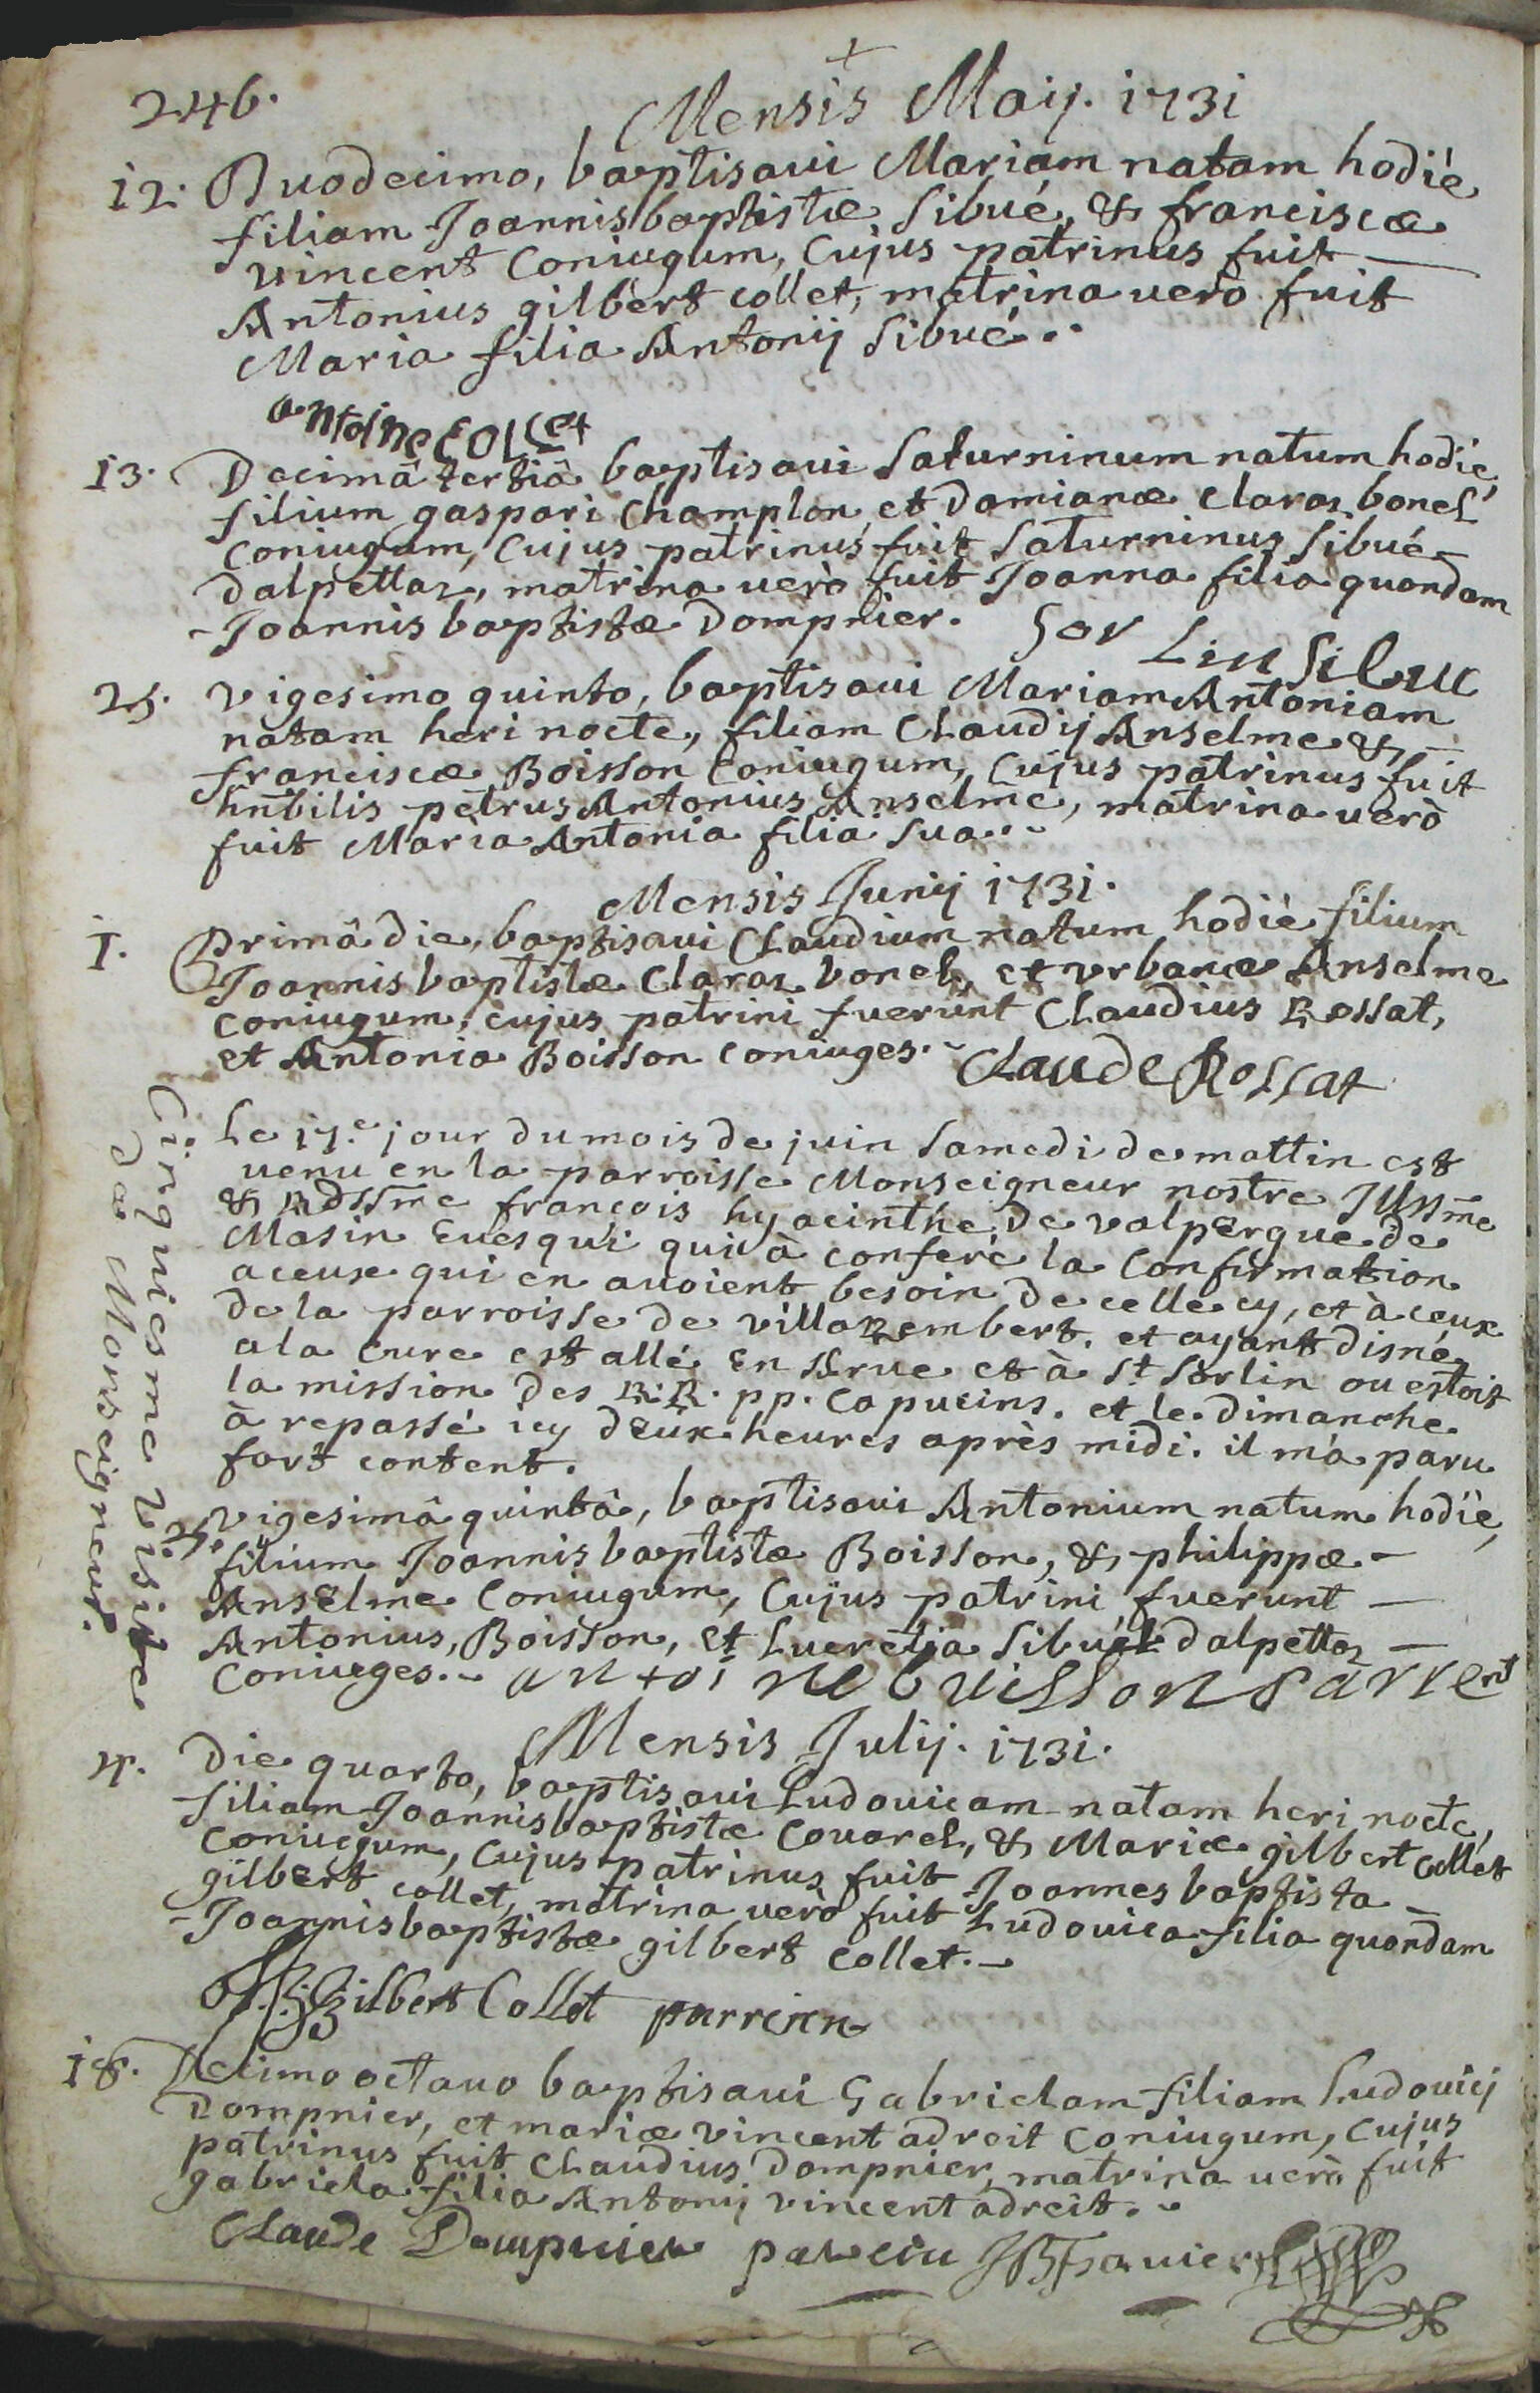 246.
+
Mensis Maij. 1731
12. Duodecimo, baptisaui Mariam natam hodiè
filiam Joannisbaptistæ Sibué, & franciscæ
vincent Coniugum, Cujus patrinus fuit —
Antonius gilbert collet, matrina uerò fuit
Maria filia Antonij Sibué..
antoine COLLet
13. Decimâ tertiâ baptisaui Saturninum natum hodiè,
filium gaspari Champlon et Damianæ Claraz bonel
Coniugum, Cujus patrinus fuit Saturninus Sibué-
dalpettaz, matrina uerò fuit Joanna filia quondam
-Joannis baptistæ Dompnier.
25. vigesimo quinto, baptisaui Mariam Antoniam
natam heri nocte, filiam Claudij Anselme & —
franciscæ Boisson Coniugum, Cujus patrinus fuit
hñbilis petrus Antonius Anselme, matrina uerò
fuit Maria Antonia filia sua..
Mensis Junij 1731.
1. Primâ die, baptisaui Claudium natum hodiè filium
Joannisbaptistæ Claraz bonel, et vrbanæ Anselme
Coniugum, cujus patrini fuerunt Claudius Rossat,
et Antonia Boisson coniuges.
Claude Rossat
Cinquiesme Visite
de Monseigneur.
Le 17.e jour du mois de juin Samedi de mattin est
uenu en la parroisse Monseigneur nostre Illss͞me
& Rdss͞me françois hyacinthe de valpergue de
Masin Euesqui qui à conferé la Confirmation
aceux qui en auoient besoin de celle cy, et à ceux
de la parroisse de villarembert. et ayant disné
ala Cure est allé En Arue et à St Sorlin ou estoit
la mission des R.R. pp. Capucins. et le dimanche
à repassé icy deux heures après midi. il m'a paru
fort content.
25. vigesimâ quintâ, baptisaui Antonium natum hodiè,
filium Joannisbaptistæ Boisson, & philippæ —
Anselme Coniugum, Cujus patrini fuerunt —
Antonius, Boisson, et Lucretia Sibué dalpettaz —
Coniuges.- antoine buisson
Mensis Julij. 1731.
4. Die quarta, baptisaui Ludouicam natam heri nocte,
filiam Joannisbaptistæ Couarel, & Mariæ gilbert Collet
Coniugum, Cujus patrinus fuit Joannes baptista —
gilbert collet, matrina uerò fuit Ludouica filia quondam
-Joannisbaptistæ gilbert collet.-
Gilbert Collet parrein
18. Decimo octauo baptisaui Gabrielam filiam Ludouicj
Dompnier, et mariæ vincent adroit Coniugum, Cujus
patrinus fuit Claudius Dompnier, matrina uerò fuit
gabriela filia Antonij vincent adreit.
Claude Dompnier parein